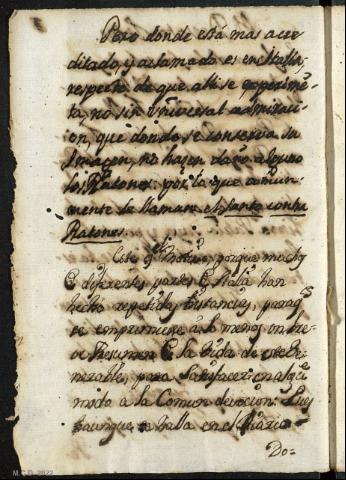 Pero donde està mas acre
ditado, y aclamado es en Italia,
respecto de que alli se experimē-
ta, no sin Universal admiraci-
on, que donde se conserva su
Imagen, no hazen daño alguno
los Ratones. por lo que comun-
mente le llaman el Santo contra
Ratones.
Este es el motivo, porque muchos
de diferentes partes de Italia han
hecho repetidas instancias, paraq̄
se comprimiese à lo menos en bre-
ve Resumen de la Vida de este
para satisfacer en algū
modo à la Comun devocion. Pues
aunque se halla en el
Do-
M.C.D. 2022